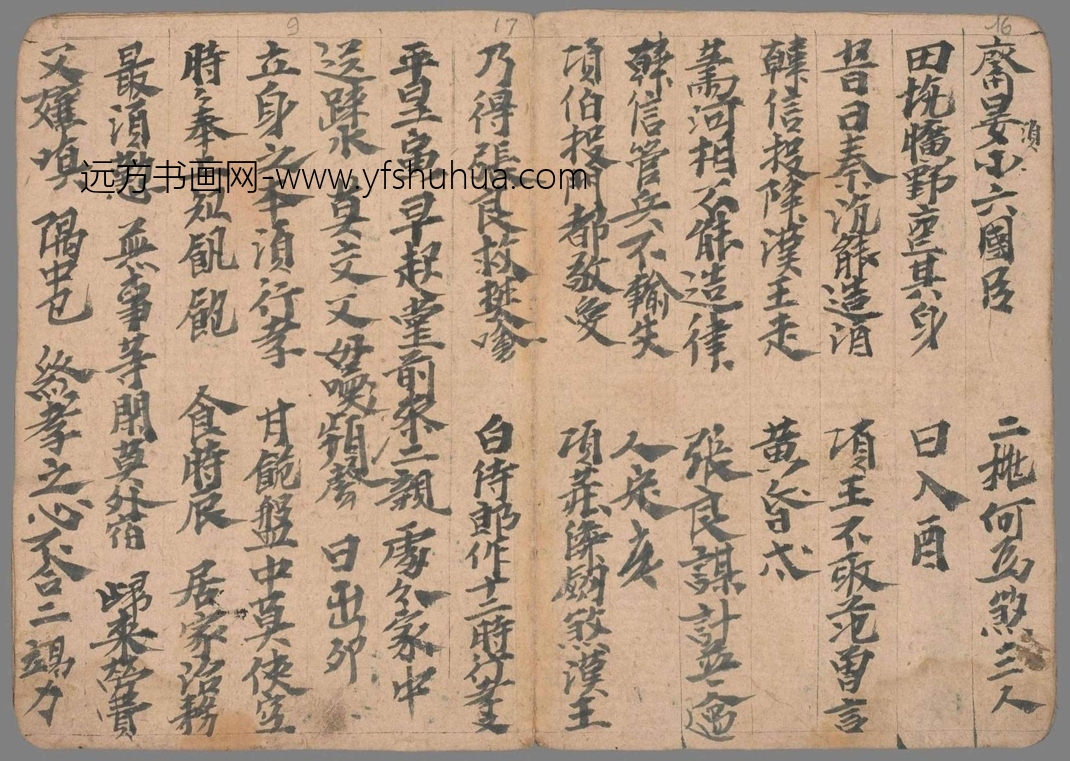 16
齋晏小六國臣 二桃何爲煞三人
須
田抗驕野意其身 日入酉
昔日秦沆能造酒 項王不取范曾言
韓信投陣漢王走 黃昏戌
蕭河相不能造律 張良謀計並過
韓信管兵不輸失 人定亥
項伯投門都敬愛 項莊儛劒煞漢王
17
乃得張良救樊噲 白侍郎作十二時行孝文
平旦寅早起堂前參二親 處分家中
送踈水莫交父母喚頻聲 日出卯
9
立身之本須行孝 甘飽盤中莫使空
時々奉 知飢飽 食時辰 居家治務
最須 無事等閑莫外宿 歸來勞費
父孃嗔 隅中巳 終孝之心不合二竭力
远方书画网-www.yfshuhua.com